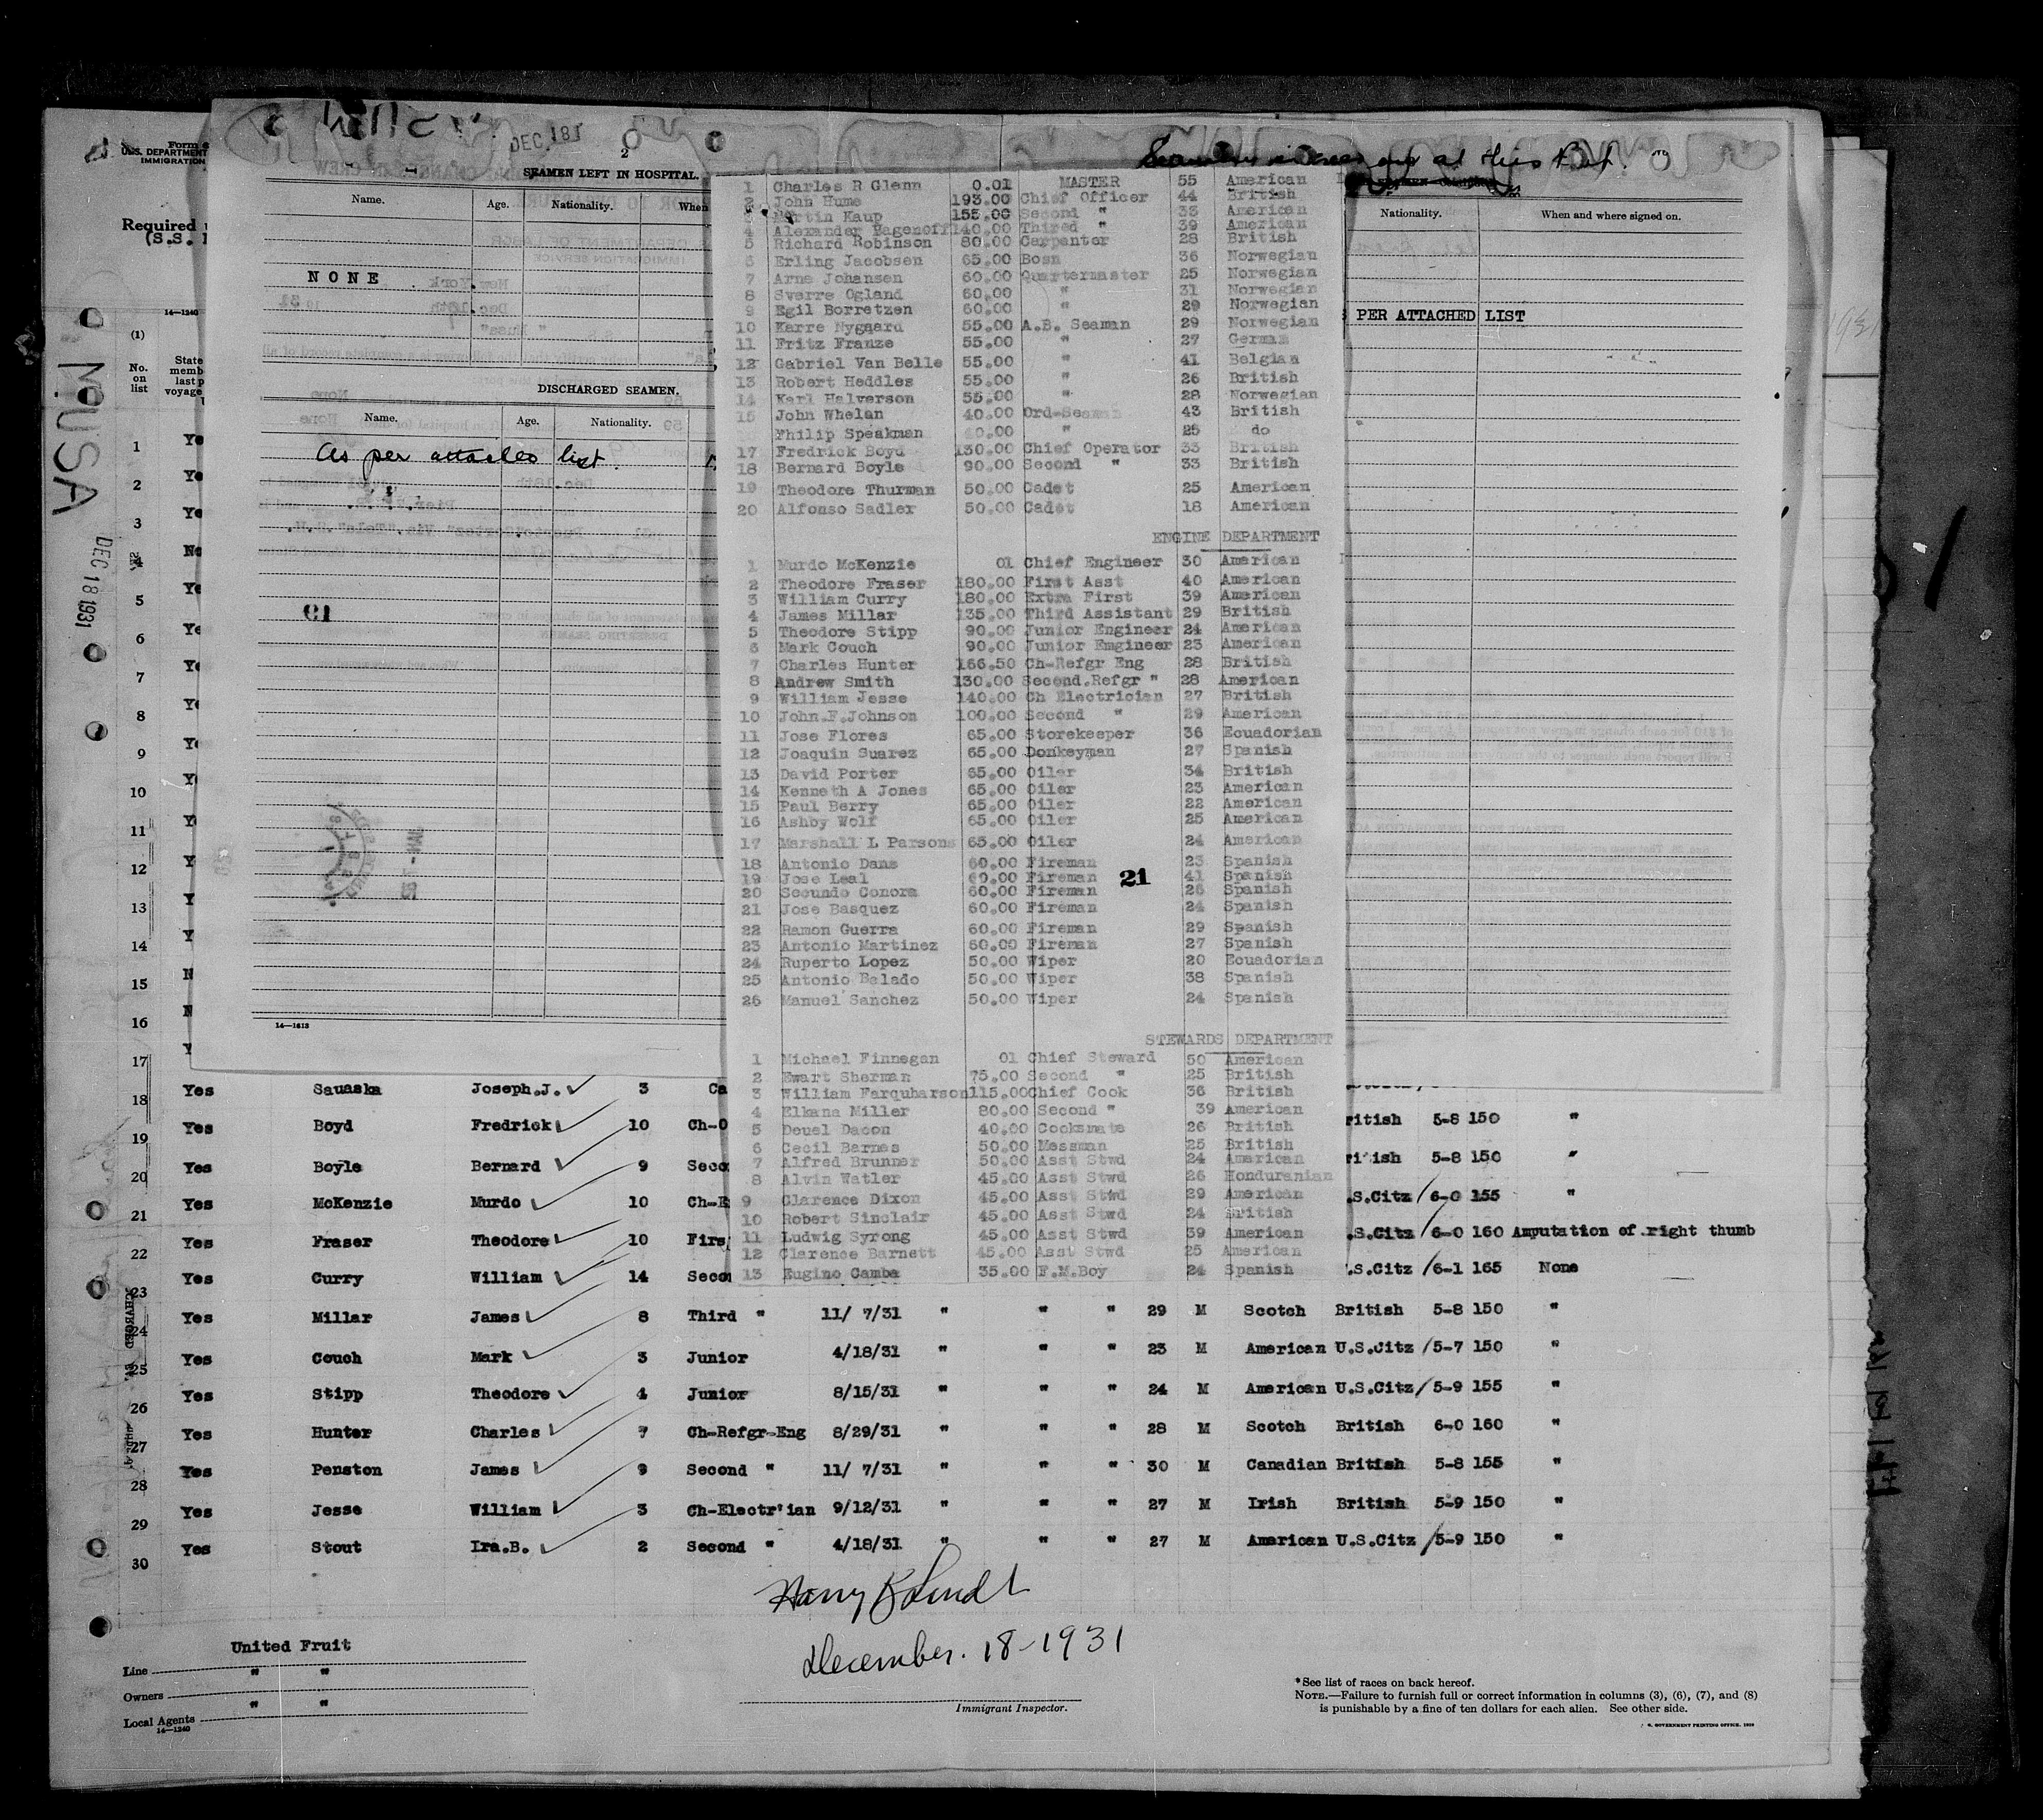 DEC 181
2
SEAMEN LEFT IN HOSPITAL.
Name. Age. Nationality. When
NONE
DISCHARGED SEAMEN.
Name. Age. Nationality.
As per attached list.
61
14—1613
at this Port.
Nationality. When and where signed on.
PER ATTACHED LIST
1 Charles R Glenn 0.01 MASTER 55 American
2 John Hume 193.00 Chief Officer 44 British
3 Martin Kaup 155.00 Second " 33 American
4 Alexander Pagenoff 140.00 Thired " 39 American
5 Richard Robinson 80.00 Carpenter 28 British
6 Erling Jacobsen 65.00 Bosn 36 Norwegian
7 Arne Johansen 60.00 Quartermaster 25 Norwegian
8 Sverre Ogland 60.00 " 31 Norwegian
9 Egil Borretzen 60.00 " 29 Norwegian
10 Karre Nygaard 55.00 A.B. Seaman 29 Norwegian
11 Fritz Franze 55.00 " 27 German
12 Gabriel Van Belle 55.00 " 41 Belgian
13 Robert Heddles 55.00 " 26 British
14 Karl Halverson 55.00 " 28 Norwegian
15 John Whelan 40.00 Ord-Seaman 43 British
Philip Speakman 40.00 " 25 do
17 Fredrick Boyd 130.00 Chief Operator 33 British
18 Bernard Boyle 90.00 Second " 33 British
19 Theodore Thurman 50.00 Cadet 25 American
20 Alfonso Sadler 50.00 Cadet 18 American
ENGINE DEPARTMENT
1 Murdo McKenzie 01 Chief Engineer 30 American
2 Theodore Fraser 180.00 First Asst 40 American
3 William Curry 180.00 Extra First 39 American
4 James Millar 135.00 Third Assistant 29 British
5 Theodore Stipp 90.00 Junior Engineer 24 American
6 Mark Couch 90.00 Junior Emgineer 23 American
7 Charles Hunter 166.50 Ch-Refgr Eng 28 British
8 Andrew Smith 130.00 Second.Refgr " 28 American
9 William Jesse 140.00 Ch Electrician 27 British
10 John.F.Johnson 100.00 Second " 29 American
11 Jose Flores 65.00 Storekeeper 36 Ecuadorian
12 Joaquin Suarez 65.00 Donkeyman 27 Spanish
13 David Porter 65.00 Oiler 34 British
14 Kenneth A Jones 65.00 Oiler 23 American
15 Paul Berry 65.00 Oiler 22 American
16 Ashby Wolf 65.00 Oiler 25 American
17 Marshall L Parsons 65.00 Oiler 24 American
18 Antonio Dans 60.00 Fireman 23 Spanish
19 Jose Leal 60.00 Fireman 41 Spanish
20 Secundo Conora 60.00 Fireman 26 Spanish
21
21 Jose Basquez 60.00 Fireman 24 Spanish
22 Ramon Guerra 60.00 Fireman 29 Spanish
23 Antonio Martinez 60.00 Fireman 27 Spanish
24 Ruperto Lopez 50.00 Wiper 20 Ecuadorian
25 Antonio Balado 50.00 Wiper 38 Spanish
26 Manuel Sanchez 50.00 Wiper 24 Spanish
STEWARDS DEPARTMENT
1 Michael Finnegan 01 Chief Steward 50 American
2 Ewart Sherman 75.00 Second " 25 British
3 William Farquharson 115.00 Chief Cook 36 British
4 Elkana Miller 80.00 Second " 39 American
5 Deuel Dacon 40.00 Cooksmate 26 British
6 Cecil Barnes 50.00 Messman 25 British
7 Alfred Brunner 50.00 Asst Stwd 24 American
8 Alvin Watler 45.00 Asst Stwd 26 Honduranian
9 Clarence Dixon 45.00 Asst Stwd 29 American
10 Robert Sinclair 45.00 Asst Stwd 24 British
11 Ludwig Syrong 45.00 Asst Stwd 39 American
12 Clarence Barnett 45.00 Asst Stwd 25 American
13 Eugino Camba 35.00 F.M.Boy 24 Spanish
Form
U.S. DEPARTMENT
IMMIGRATION
Required
(S.S.
14—1240
(1)
No. on list
State
memb
last p
voyage
MUSA
DEC 18 1931
1
2
3
4
5
6
7
8
9
10
11
12
13
14
15
16
17
18 Yes Sauaska Joseph.J. 3 Ca
19 Yes Boyd Fredrick 10 Ch-O ritish 5-8 150 "
20 Yes Boyle Bernard 9 Seco ritish 5-8 150 "
21 Yes McKenzie Murdo 10 Ch-E .S.Citz 6-0 155 "
22 Yes Fraser Theodore 10 Firs .S.Citz 6-0 160 Amputation of right thumb
23 Yes Curry William 14 Seco .S.Citz 6-1 165 None
24 Yes Millar James 8 Third " 11/ 7/31 " " " 29 M Scotch British 5-8 150 "
25 Yes Couch Mark 3 Junior 4/18/31 " " " 23 M American U.S.Citz 5-7 150 "
26 Yes Stipp Theodore 4 Junior 8/15/31 " " " 24 M American U.S.Citz 5-9 155 "
27 Yes Hunter Charles 7 Ch-Refgr-Eng 8/29/31 " " " 28 M Scotch British 6-0 160 "
28 Yes Penston James 9 Second " 11/ 7/31 " " " 30 M Canadian British 5-8 155 "
29 Yes Jesse William 3 Ch-Electr'ian 9/12/31 " " " 27 M Irish British 5-9 150 "
30 Yes Stout Ira.B. 2 Second " 4/18/31 " " " 27 M American U.S.Citz 5-9 150 "
December. 18-1931
Immigrant Inspector.
United Fruit
Line " "
Owners " "
Local Agents
14—1240
*See list of races on back hereof.
NOTE.—Failure to furnish full or correct information in columns (3), (6), (7), and (8)
is punishable by a fine of ten dollars for each alien. See other side.